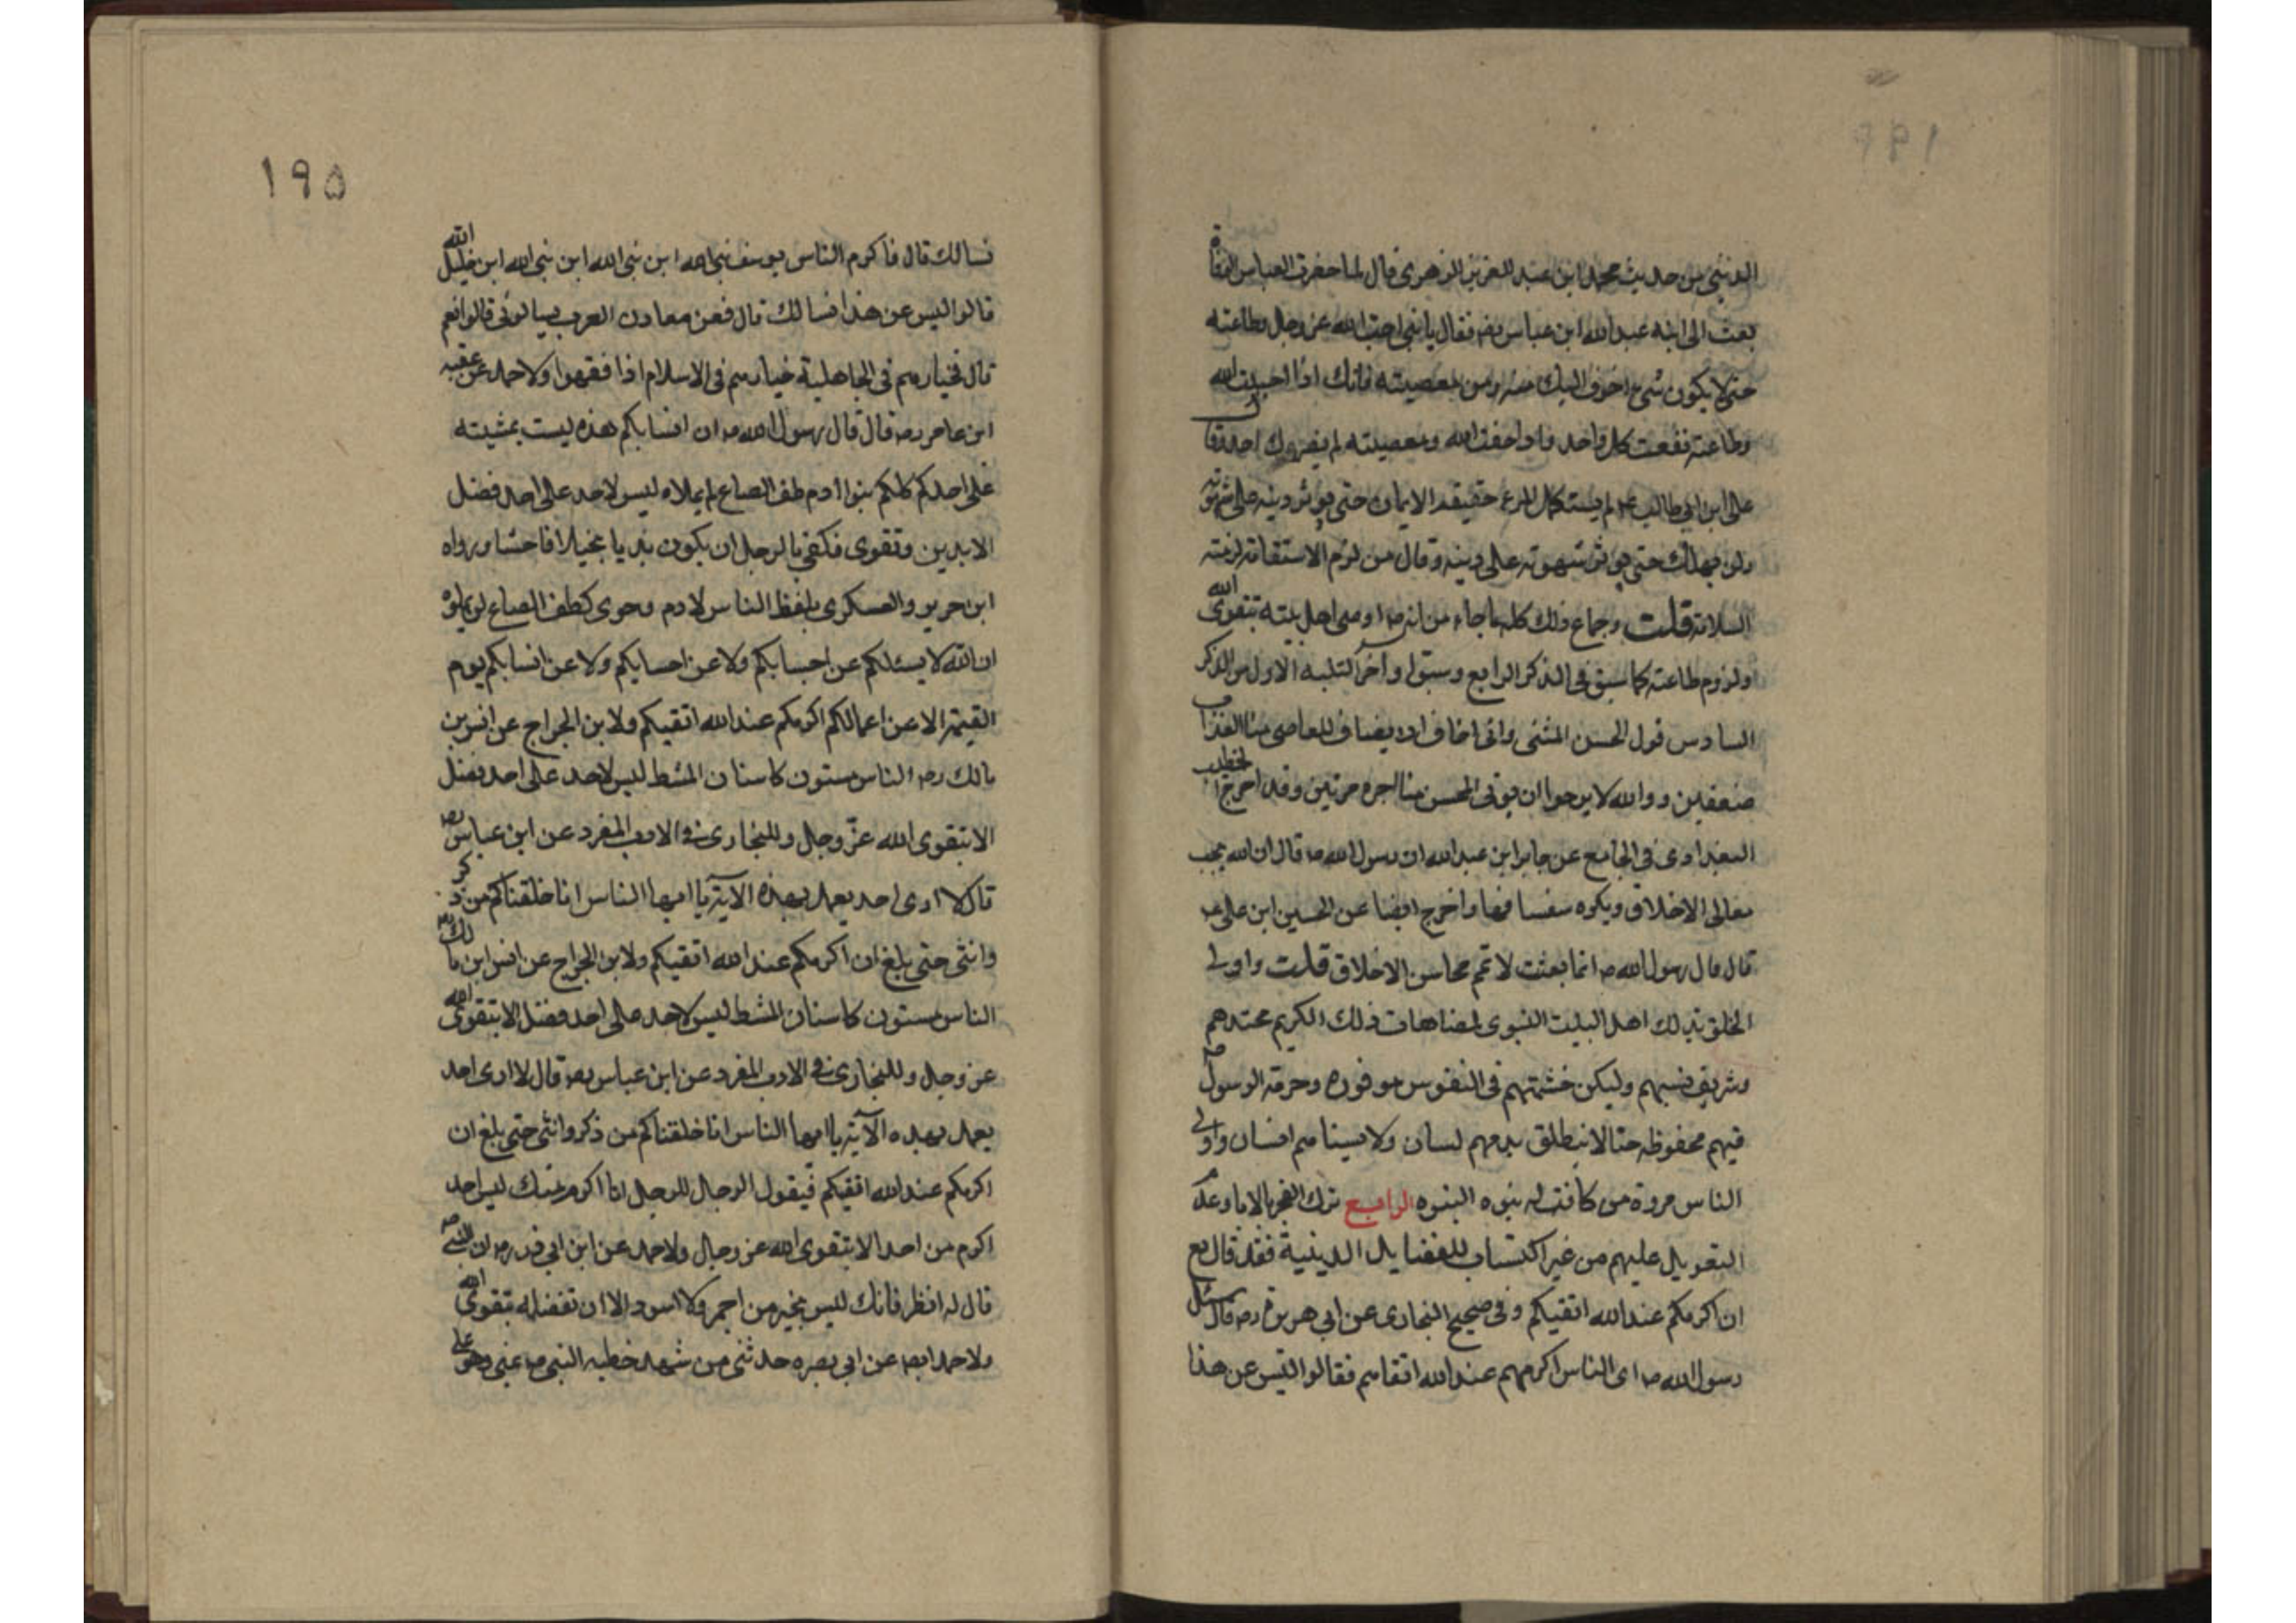 الدنيى من حديث محمد ابن عبد العزيز الزهرى قال لما حضرت العباس الوفاة
بعث الى ابنه عبد الله ابن عباس رضه فقال يا بنى احب الله عز وجل وطاعته
حتى لا يكون شئ اخوف اليك منه ومن معصيته فانك اذا احببت الله
وطاعته نفعت كل واحد واذا خفت الله ومعصيته لم يضروك احد وقال
على ابن ابى طالب عم لم يستكمل المرء حقيقة الايمان حتى يوثر دينه على شهوته
ولن يهلك حتى يوثر شهوته على دينه وقال من لزم الاستقامة لزمته
السلامة قلت وجماع ذلك كله ما جاء من انه ص اوصى اهل بيته بتقوى الله
ولزوم طاعته كما سبق فى الذكر الرابع وسبق اواخر التنبيه الاول من الذكر
السادس قول الحسن المثنى وانى اخاف ان يضاف للعاصى منا العذاب
ضعفين ووالله لا يرجوا ان يوتى المحسن منا اجره مرتين وقد اخرج الخطيب
البغدادى فى الجامع عن جابر ابن عبد الله ان رسول الله ص قال ان الله يحب
معالى الاخلاق ويكره سفسافها واخرج ايضا عن الحسين ابن على عم
قال قال رسول الله ص انما بعثت لاتمم محاسن الاخلاق قلت واولى
الخلق بذلك اهل البيت النبوى لمضاهات ذلك الكريم محتدهم
وشريف نسبهم وليكن حشمتهم فى النفوس موفوره وحرمة الرسول ص
فيهم محفوظه حتا لا ينطلق بذمهم لسان ولا يسناهم انسان واولى
الناس مروة من كانت له بنوه النبوه الرابع ترك الفخر بالاباء وعدم
التعويل عليهم من غير اكتساب للفضايل الدينية فقد قال تع
ان اكرمكم عند الله اتقيكم وفى صحيح البخارى عن ابى هريرة رضه قال سئل
رسول الله ص اى الناس اكرمهم عند الله اتقاهم فقالوا اليس عن هذا
١٩٥
نسالك قال فاكرم الناس يوسف نبى الله ابن نبى الله ابن نبى الله ابن خليل الله
قالوا ليس عن هذا نسالك قال فعن معادن العرب يسالونى قالوا نعم
قال فخيارهم فى الجاهلية خيارهم فى الاسلام اذا فقهوا ولاحمد عن عقبه
ابن عامر رضه قال قال رسول الله ص ان انسابكم هذه ليست بمشيته
على احدكم كلكم بنوا ادم طف الصاع لم يملاه ليس لاحد على احد فضل
الا بدين وتقوى فكفى بالرجل ان يكون بذيا بخيلا فاحشا ورواه
ابن جرير والعسكرى بلفظ الناس لادم وحوى كطف الصاع لن يملوه
ان الله لا يسئلكم عن احسابكم ولا عن احسابكم ولا عن انسابكم يوم
القيمة الا عن اعمالكم اكرمكم عند الله اتقيكم ولابن الجراح عن انس بن
مالك رضه الناس مستون كاسنان المشط ليس لاحد على احد فضل
الا بتقوى الله عزّ وجل وللبخارى فى الادب المفرد عن ابن عباس رضه
قال لا ارى احد يعمل بهذه الآية يا ايها الناس انا خلقناكم من ذكر
وانثى حتى بلغ ان اكرمكم عند الله اتقيكم ولابن الجراح عن انس ابن مالك رضه
الناس مستون كاسنان المشط ليس لاحد على احد فضل الا بتقوى الله
عز وجل وللبخارى فى الادب المفرد عن ابن عباس رضه قال لا ارى احد
يعمل بهده الآية يا ايها الناس انا خلقناكم من ذكر وانثى حتى بلغ ان
اكرمكم عند الله اتقيكم فيقول الرجال للرجل انا اكرم منك ليس احد
اكرم من احد الا بتقوى الله عز وجل ولاحمد عن ابن ابى ذر رضه ان النبى ص
قال له انظر فانك ليس بخير من احمر ولا اسود الا ان تفضله بتقوى الله
ولاحمد ايضا عن ابى بصره حدثنى من شهد خطبه النبى ص بمنى وهو على